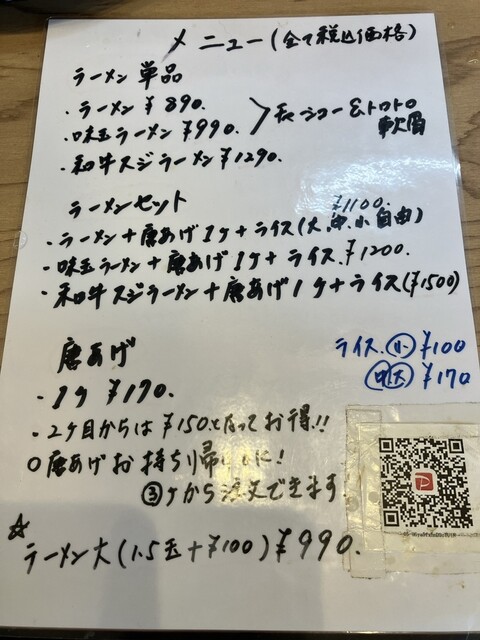 メニュー(全て税込価格)
ラーメン 単品
・ラーメン ¥890.
・味玉ラーメン ¥990.
チャーシュー&トロトロ
軟骨
・和牛スジラーメン ¥1290.
ラーメンセット
¥1100.
・ラーメン+唐あげ1ヶ+ライス(大、中、小自由)
・味玉ラーメン+唐あげ1ヶ+ライス.¥1200.
・和牛スジラーメン+唐あげ1ヶ+ライス(¥1500)
唐あげ
ライス.小 ¥100
中大 ¥170
・1ヶ ¥170.
・2ヶ目からは¥150となってお得!!
○唐あげお持ち帰りに!
③ヶから注文できます
☆
ラーメン大(1.5玉+¥100)¥990.